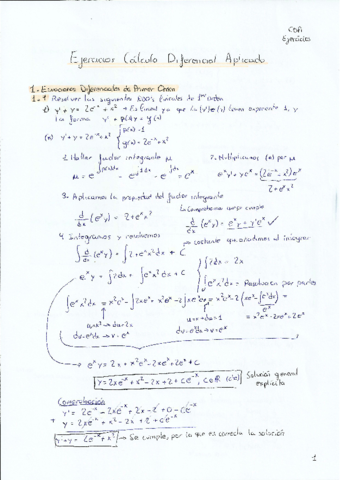 CDA
Ejercicios
Ejercicios Cálculo Diferencial Aplicado
1.- Ecuaciones Diferenciales de Primer Orden
1.1 Resolver las siguientes EDO's lineales de 1er orden
y' + y = 2e^-x + x² → Es lineal ya que la (y') e (y) tienen exponente 1, y
la forma y' + p(x)y = g(x)
(a) y' + y = 2e^-x + x² { p(x) = 1
g(x) = 2e^-x + x²
2. Hallar factor integrante μ
μ = e^∫p(x)dx = e^∫1dx = e^x
2. Multiplicamos (a) por μ
e^x y' + y e^x = (2e^-x + x²)e^x
2 + e^x x²
3. Aplicamos la propiedad del factor integrante
d/dx (e^x y) = 2 + e^x x²
Lo comprobamos que se cumple
d/dx (e^x y) = e^x y + y' e^x ✓
4. Integramos y resolvemos
→ constante que añadimos al integrar
∫ d/dx (e^x y) = ∫ 2 + e^x x² dx + C
e^x y = ∫2dx + ∫e^x x² dx + C
{ ∫2dx = 2x
∫e^x x² dx = Resolver por partes
∫e^x x² dx = x² e^x - ∫2x e^x = x² e^x - 2∫x e^x dx = x² e^x - 2(xe^x - ∫e^x dx) =
= x² e^x - 2xe^x + 2e^x
u = x² → du = 2x
dv = e^x dx → v = e^x
u = x → du = 1
dv = e^x dx → v = e^x
e^x y = 2x + x² e^x - 2xe^x + 2e^x + C
y = 2xe^-x + x² - 2x + 2 + Ce^-x, C∈ℝ (cte)
Solución general
explícita
Comprobación
y' = 2e^-x - 2xe^-x + 2x - 2 + 0 - Ce^-x
+ y = 2xe^-x + x² - 2x + 2 + Ce^-x
y' + y = 2e^-x + x² → Se cumple, por lo que es correcta la solución
1